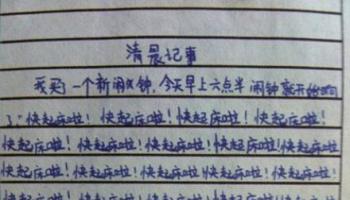 清晨记事
我买了一个新闹钟,今天早上六点半闹钟就开始响
了:“快起床啦!快起床啦!快起床啦!快起床啦!
快起床啦!快起床啦!快起床啦!快起床啦!快起床啦!
快起床啦!快起床啦!快起床啦!快起床啦!快起床啦!
快起床啦!快起床啦!快起床啦!快起床啦!快起床啦!